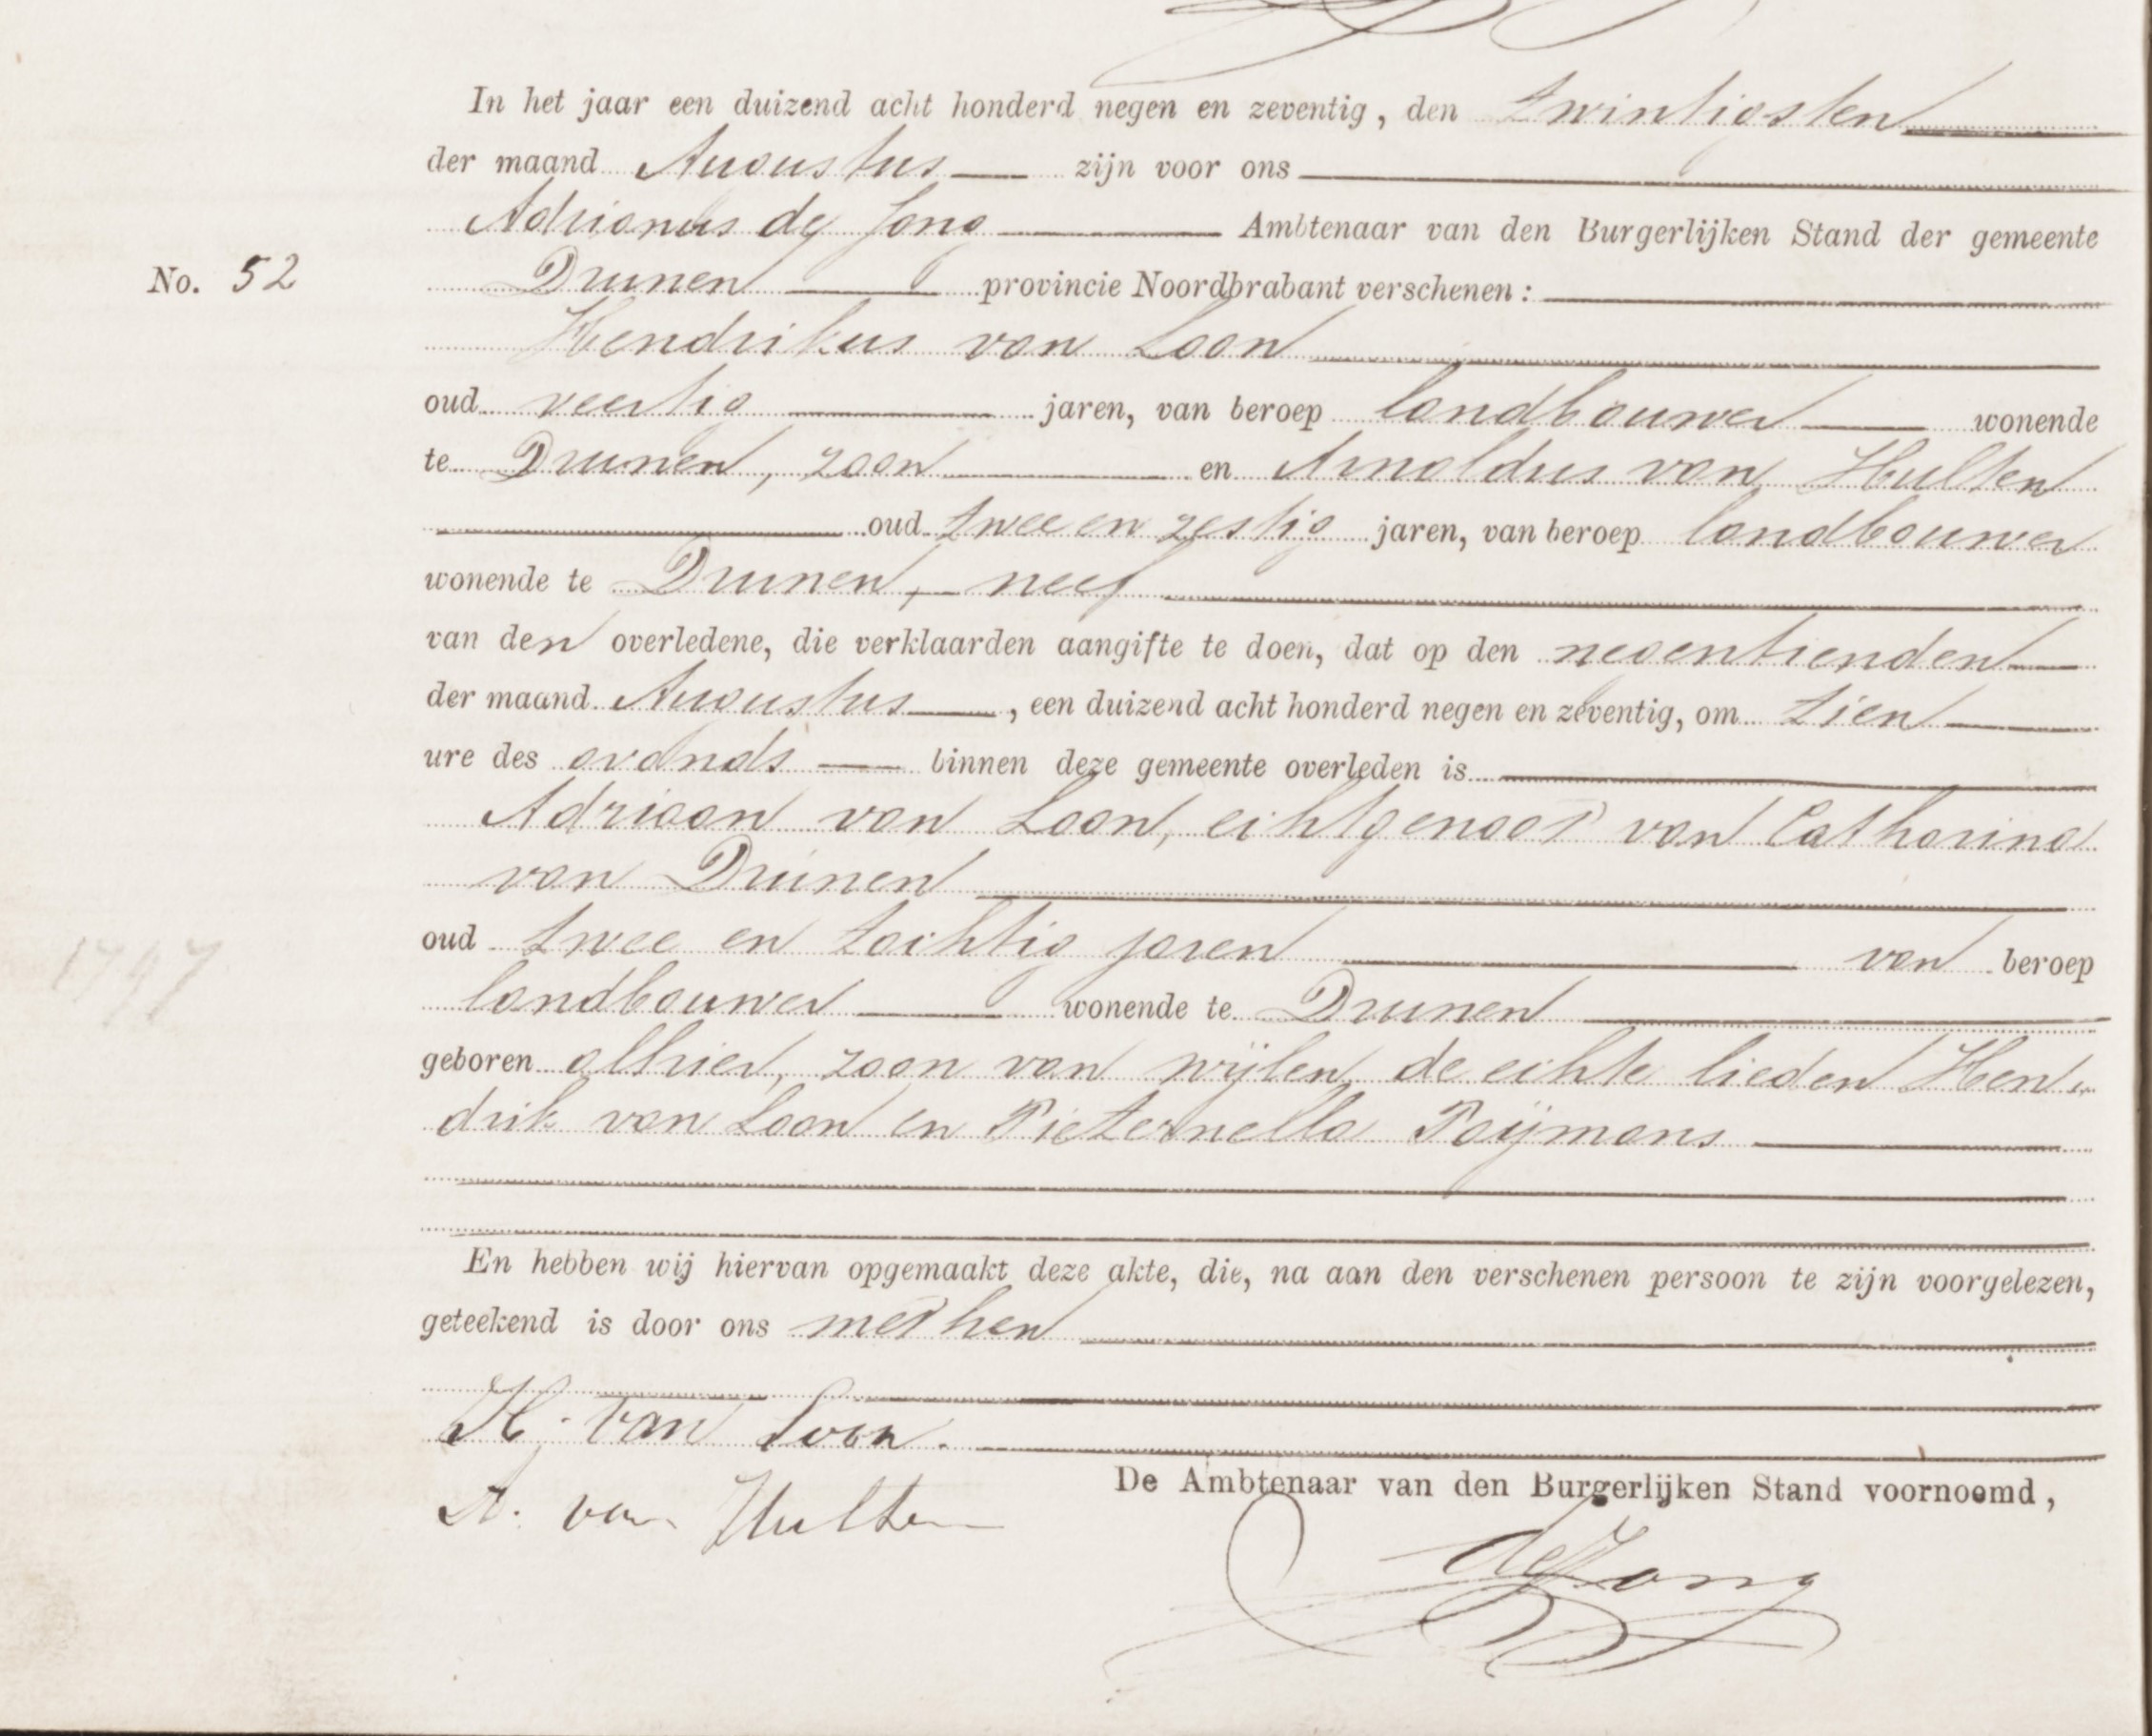 In het jaar een duizend acht honderd negen en zeventig, den twintigsten
der maand Augustus zijn voor ons
Adrianus de Jong Ambtenaar van den Burgerlijken Stand der gemeente
No. 52 Drunen provincie Noordbrabant verschenen:
Hendrikus van Loon
oud veertig jaren, van beroep landbouwer wonende
te Drunen, zoon en Arnoldus van Hulten
oud twee en zestig jaren, van beroep landbouwer
wonende te Drunen, neef
van den overledene, die verklaarden aangifte te doen, dat op den negentienden
der maand Augustus, een duizend acht honderd negen en zeventig, om tien
ure des avonds binnen deze gemeente overleden is
Adriaan van Loon, echtgenoot van Catharina
van Drunen
oud twee en tachtig jaren van beroep
1797
landbouwer wonende te Drunen
geboren alhier, zoon van wijlen de echte lieden Hen„
drik van Loon en Pieternella Paijmans
En hebben wij hiervan opgemaakt deze akte, die, na aan den verschenen persoon te zijn voorgelezen,
geteekend is door ons met hen
H. van Loon.
De Ambtenaar van den Burgerlijken Stand voornoemd,
A. van Hulten
de Jong